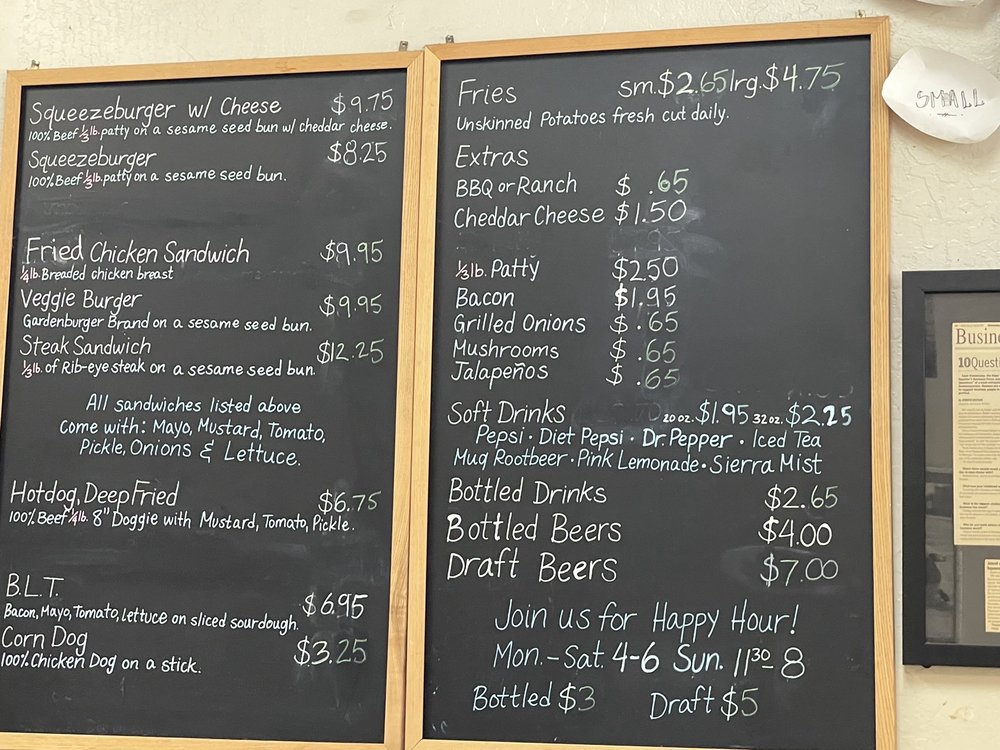 Squeezeburger w/ Cheese $9.75
100% Beef 1/3 lb. patty on a sesame seed bun w/ cheddar cheese.
Squeezeburger $8.25
100% Beef 1/3 lb. patty on a sesame seed bun.
Fried Chicken Sandwich $9.95
1/4 lb. Breaded chicken breast
Veggie Burger $9.95
Gardenburger Brand on a sesame seed bun.
Steak Sandwich $12.25
1/3 lb. of Rib-eye steak on a sesame seed bun.
All sandwiches listed above
come with: Mayo, Mustard, Tomato,
Pickle, Onions & Lettuce.
Hotdog, Deep Fried $6.75
100% Beef 1/4 lb. 8" Doggie with Mustard, Tomato, Pickle.
B.L.T. $6.95
Bacon, Mayo, Tomato, lettuce on sliced sourdough.
Corn Dog $3.25
100% Chicken Dog on a stick.
Fries sm. $2.65 lrg. $4.75
Unskinned Potatoes fresh cut daily.
Extras
BBQ or Ranch $ .65
Cheddar Cheese $1.50
1/3 lb. Patty $2.50
Bacon $1.95
Grilled Onions $ .65
Mushrooms $ .65
Jalapeños $ .65
Soft Drinks 20 oz. $1.95 32 oz. $2.25
Pepsi · Diet Pepsi · Dr. Pepper · Iced Tea
Mug Rootbeer · Pink Lemonade · Sierra Mist
Bottled Drinks $2.65
Bottled Beers $4.00
Draft Beers $7.00
Join us for Happy Hour!
Mon. - Sat. 4-6 Sun. 11:30 8
Bottled $3 Draft $5
SMALL
Busine
10 Questi